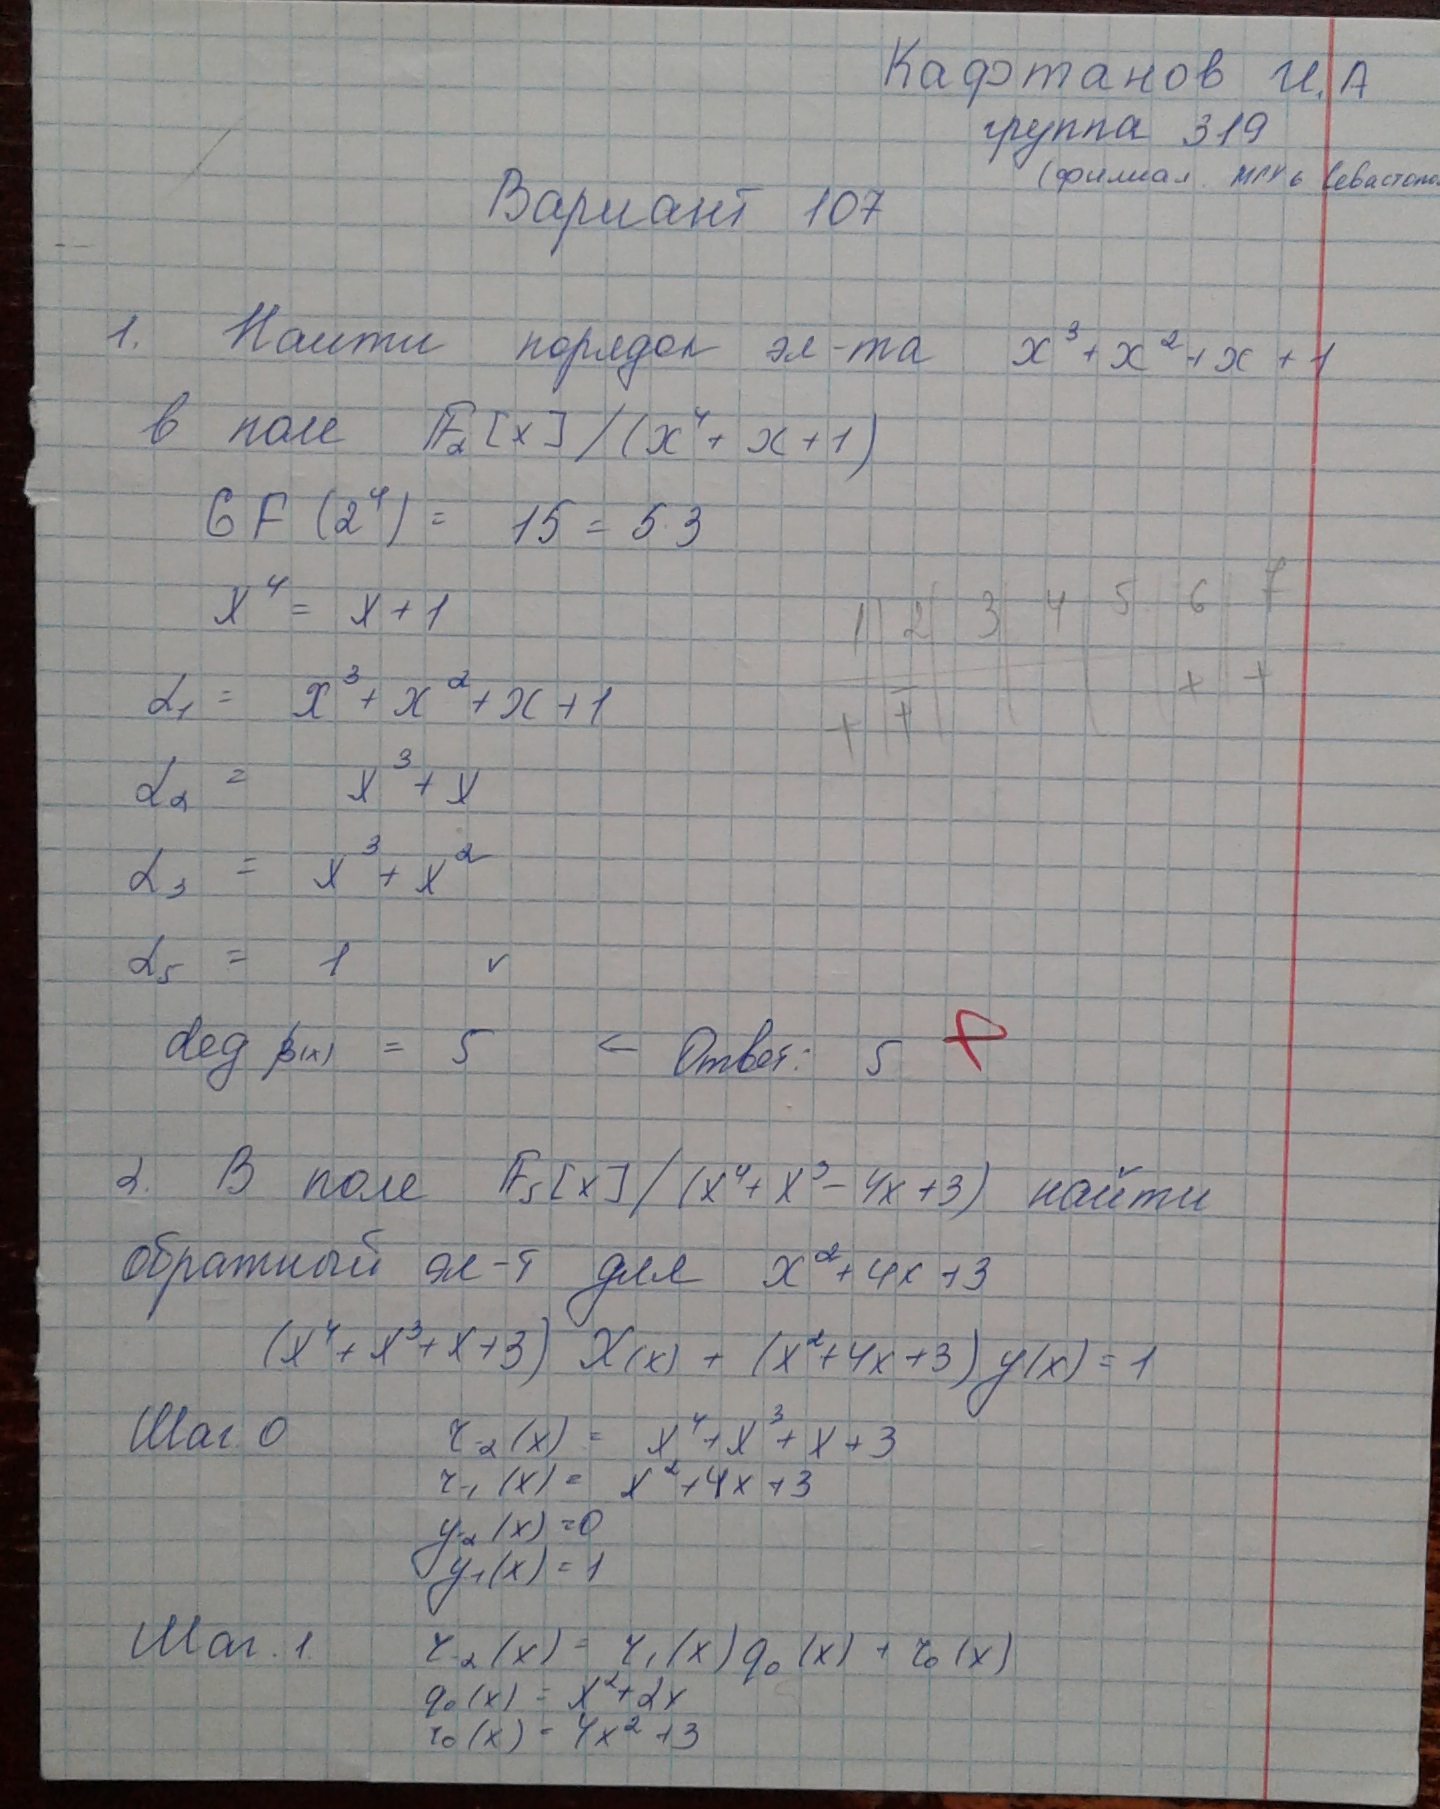 Кафтанов И.А
группа 319
(филиал МГУ в Севастопол
Вариант 107
1. Найти порядок эл-та x³+x²+x+1
в поле F₂[x]/(x⁴+x+1)
GF(2⁴) = 15 = 5·3
x⁴ = x+1
1 2 3 4 5 6 7
α₁ = x³+x²+x+1
+ + + +
α₂ = x³+x
α₃ = x³+x²
α₅ = 1 v
deg β(x) = 5 ← Ответ: 5
2. В поле F₅[x]/(x⁴+x³-4x+3) найти
обратный эл-т для x²+4x+3
(x⁴+x³+x+3) X(x) + (x²+4x+3) y(x) = 1
Шаг 0 r₋₂(x) = x⁴+x³+x+3
r₋₁(x) = x²+4x+3
y₋₂(x) = 0
y₋₁(x) = 1
Шаг. 1. r₋₂(x) = r₋₁(x) q₀(x) + r₀(x)
q₀(x) = x²+2x
r₀(x) = 4x²+3